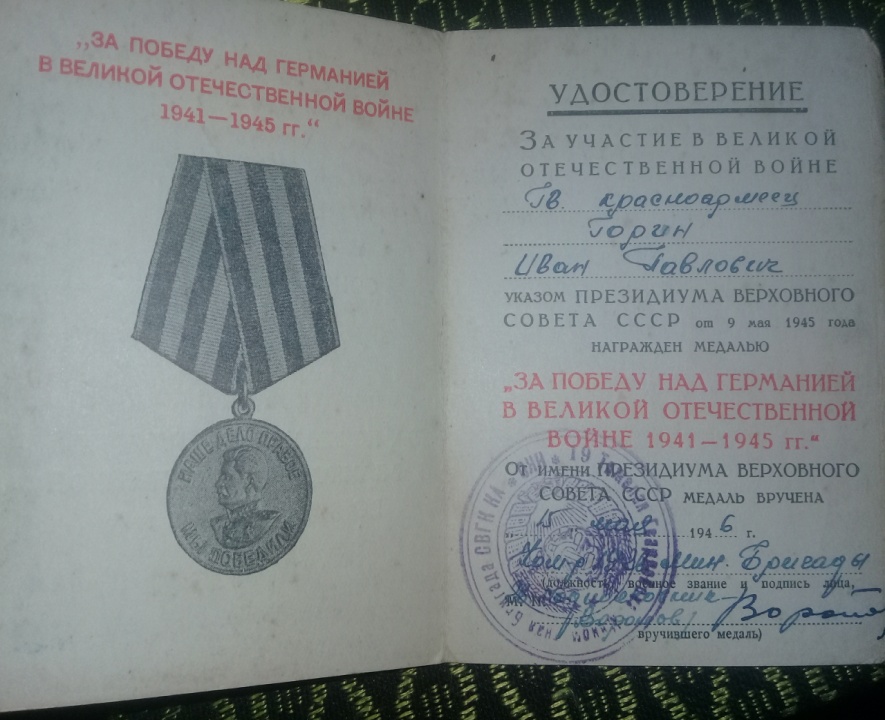 „ЗА ПОБЕДУ НАД ГЕРМАНИЕЙ
В ВЕЛИКОЙ ОТЕЧЕСТВЕННОЙ ВОЙНЕ
1941—1945 гг.“
НАШЕ ДЕЛО ПРАВОЕ
МЫ ПОБЕДИЛИ
УДОСТОВЕРЕНИЕ
ЗА УЧАСТИЕ В ВЕЛИКОЙ
ОТЕЧЕСТВЕННОЙ ВОЙНЕ
Гв. красноармеец
Горин
Иван Павлович
УКАЗОМ ПРЕЗИДИУМА ВЕРХОВНОГО
СОВЕТА СССР от 9 мая 1945 года
НАГРАЖДЕН МЕДАЛЬЮ
„ЗА ПОБЕДУ НАД ГЕРМАНИЕЙ
В ВЕЛИКОЙ ОТЕЧЕСТВЕННОЙ
ВОЙНЕ 1941—1945 гг.“
ОТ ИМЕНИ ПРЕЗИДИУМА ВЕРХОВНОГО
СОВЕТА СССР МЕДАЛЬ ВРУЧЕНА
мая 1946 г.
Мин. Бригады
(должность, военное звание и подпись лица,
вручившего медаль)
бригада СВГК КА * 19